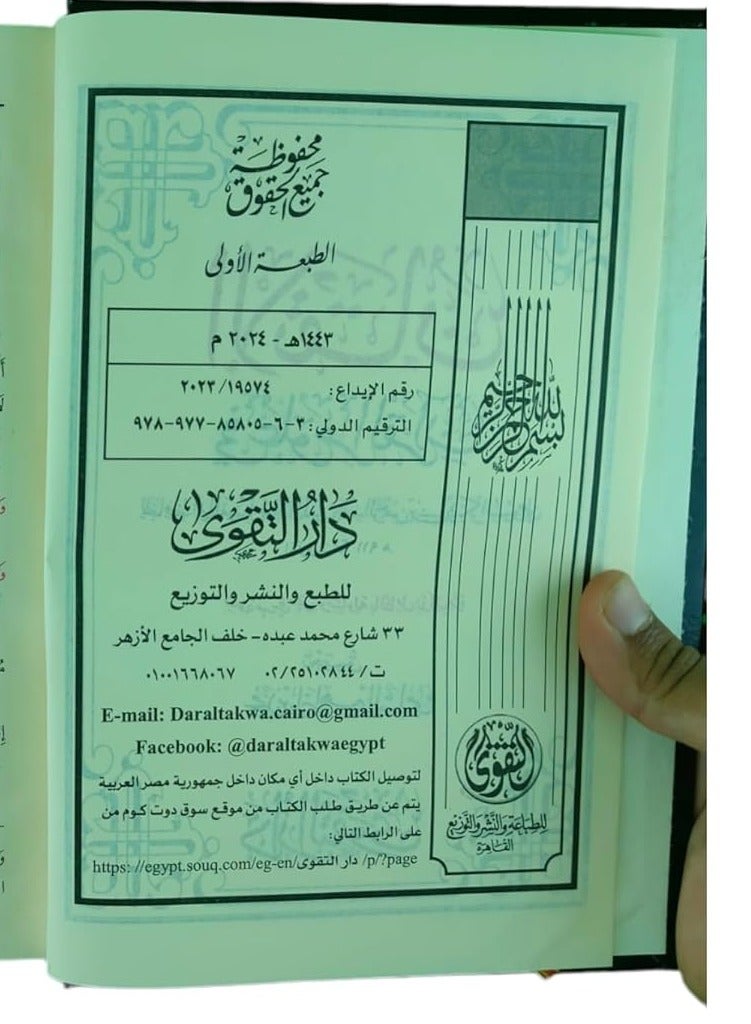 محفوظة
جميع الحقوق
الطبعة الأولى
١٤٤٣هـ - ٢٠٢٤ م
رقم الإيداع: ٢٠٢٣/١٩٥٧٤
الترقيم الدولي: ٣-٦-٨٥٨٠٥-٩٧٧-٩٧٨
دَارُ التَّقْوَى
للطبع والنشر والتوزيع
٣٣ شارع محمد عبده- خلف الجامع الأزهر
ت/ ٠٢/٢٥١٠٢٨٤٤ ٠١٠٠١٦٦٨٠٦٧
E-mail: Daraltakwa.cairo@gmail.com
Facebook: @daraltakwaegypt
لتوصيل الكتاب داخل أي مكان داخل جمهورية مصر العربية
يتم عن طريق طلب الكتاب من موقع سوق دوت كوم من
على الرابط التالي:
https://egypt.souq.com/eg-en/دار التقوى /p/?page
بسم الله الرحمن الرحيم
التقوى
للطباعة والنشر والتوزيع
القاهرة